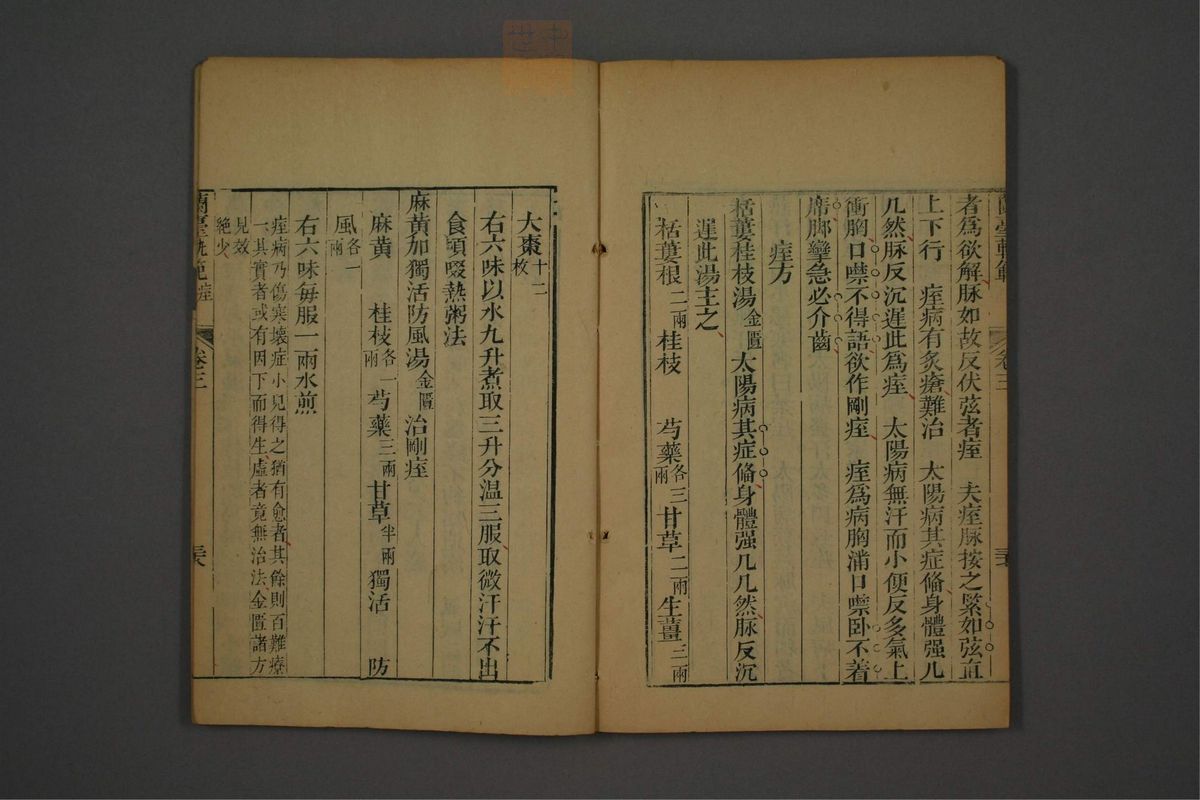 者爲欲解脉如故反伏弦者痙　夫痙脉按之緊如弦直
上下行　痙病有炙瘡難治　太陽病其症俻身體强几
几然脉反沉遲此爲痙　太陽病無汗而小便反多氣上
衝胸口噤不得語欲作剛痙　痙爲病胸滿口噤卧不着
席脚攣急必介齒
痙方
栝蔞桂枝湯 金匱 太陽病其症俻身體强几几然脉反沉
遲此湯主之
栝蔞根 二兩 桂枝　芍藥 各三兩 甘草 二兩 生薑 三兩
大棗 十二枚
右六味以水九升煮取三升分温三服取微汗汗不出
食頃啜熱粥法
麻黄加獨活防風湯 金匱 治剛痙
麻黄　桂枝 各一兩 芍藥 三兩 甘草 半兩 獨活　防
風 各一兩
右六味每服一兩水煎
痙病乃傷寒壞症小兒得之猶有愈者其餘則百難療
一其實者或有因下而得生虛者竟無治法金匱諸方
見效
絶少
蘭臺軌範 痙　卷三